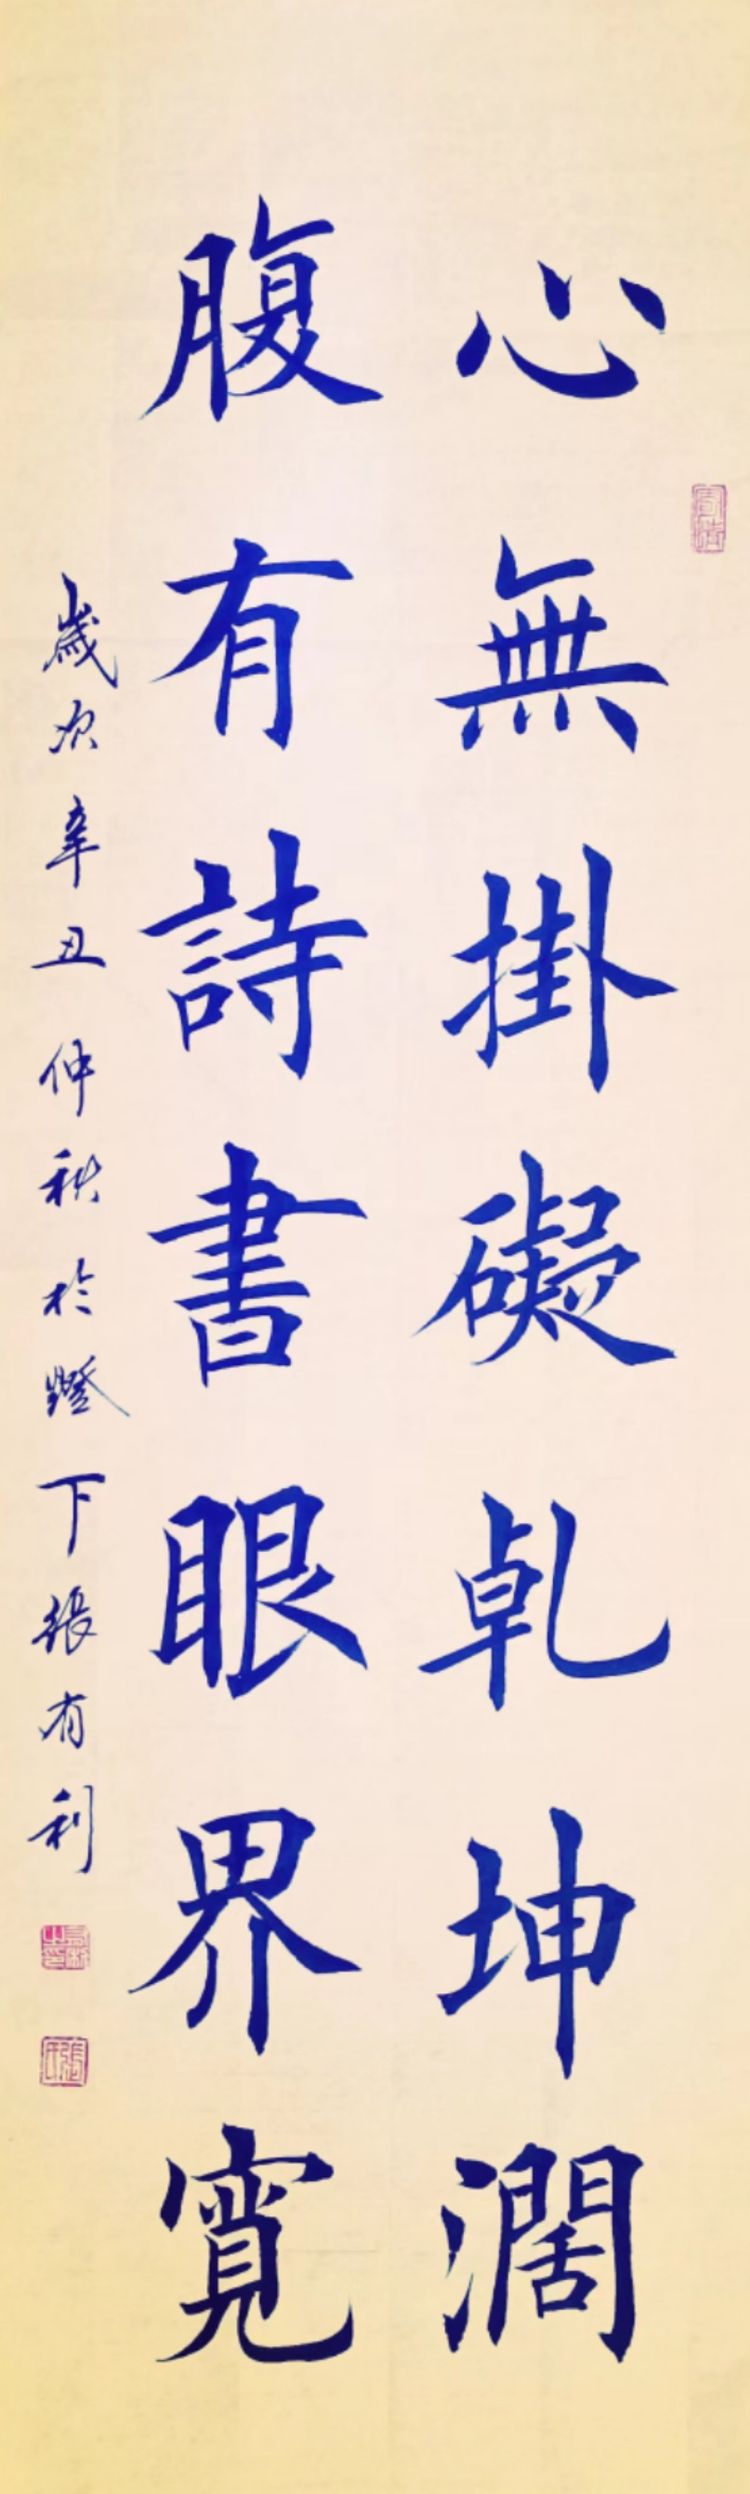 心無掛礙乾坤濶
腹有詩書眼界寬
歲次辛丑仲秋於燈下張有利